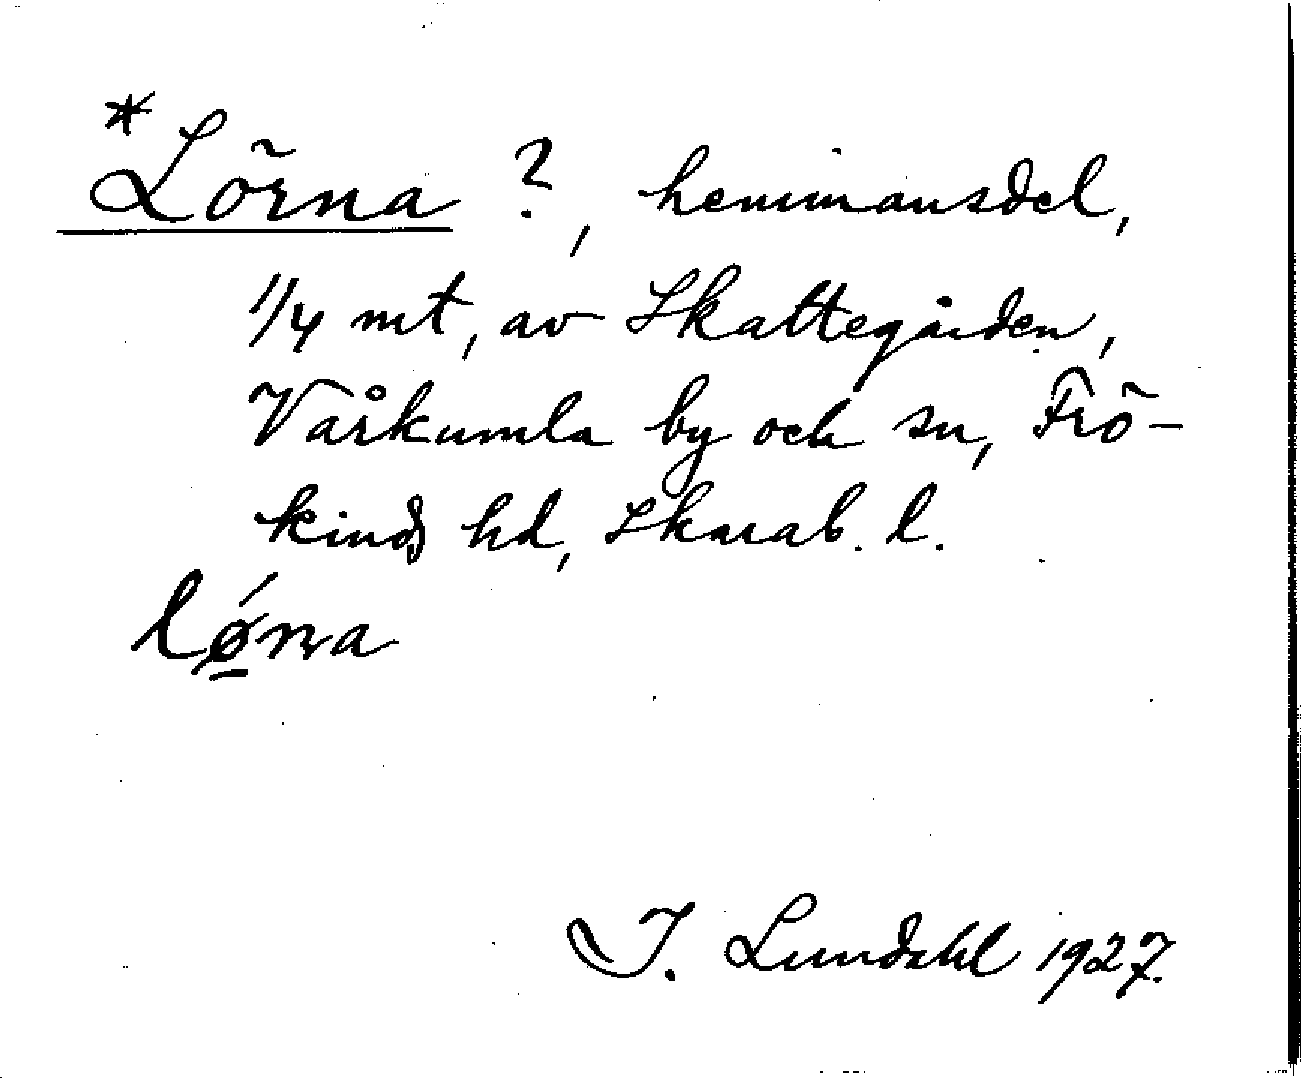 *Lörna ?, hemmansdel,
1/4 mt, av Skattegården,
Vårkumla by och sn, Frö-
kinds hd, Skarab. l.
lǿ̱na
I. Lundahl 1927.